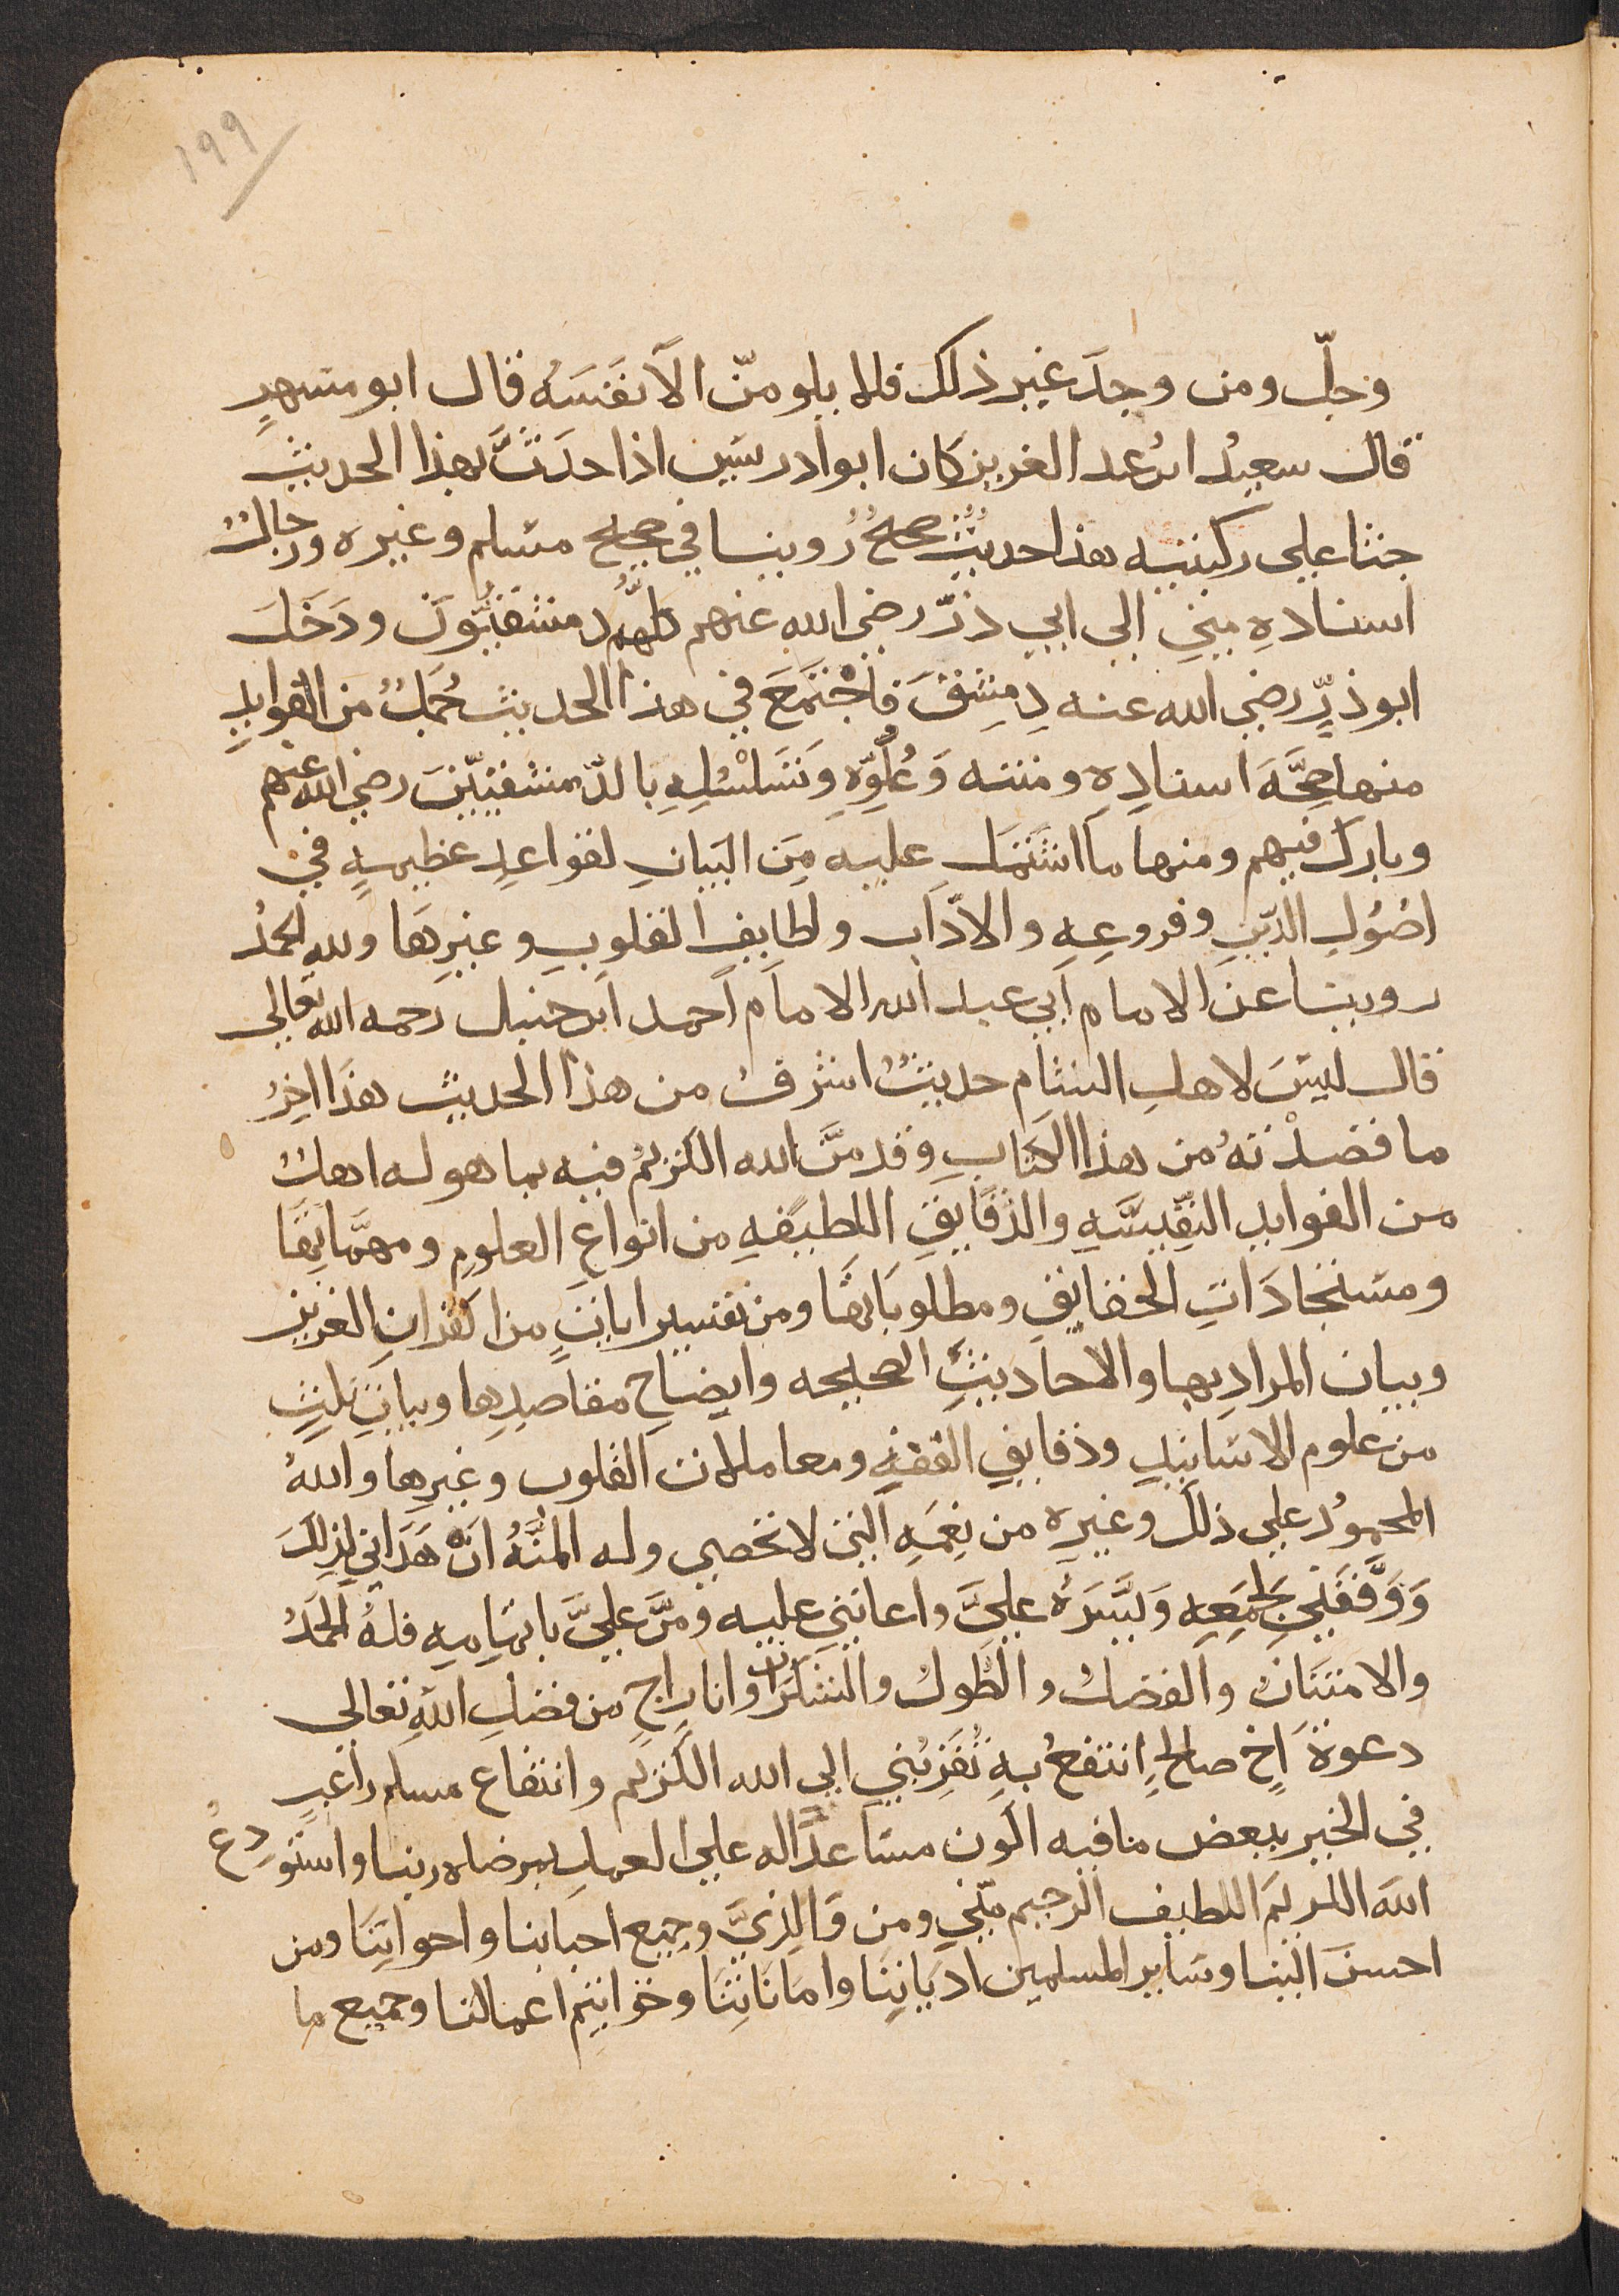 ١٩٩
وجلّ ومن وجدَ غير ذلك فلا يلومنّ الاّ نفسَه قال ابو مسهرٍ
قال سعيدُ ابن عبد العزيز كان ابو ادريس اذا حدَّثَ بهذا الحديث
جثا على ركبتيه هذا حديثٌ صحيحٌ رُوينا في صحيح مسلم وغيره ورجالُ
اسنادهِ مِنِّي الى ابي ذرّ رضي الله عنهم كلُّهم دمشقيُّونَ ودَخَلَ
ابو ذرٍّ رضي الله عنه دِمِشقَ فاجْتمَعَ في هذا الحديث جُمَلٌ من الفوايدِ
منها صِحَّةَ اسنادِهِ ومتنه وَعُلُوِّهِ وَتَسَلْسُلِهِ بالدِّمشقيّينَ رضي الله عنهم
وبارك فيهم ومنها ما اشتمَلَ عليه مِن البَيانِ لقواعدِ عظيمهٍ في
اصُولِ الدّينِ وفروعِهِ والادَاب ولطايفِ القلوبِ وغيرِهَا ولله الحمدُ
روينا عن الامام ابي عبد الله الامام احمد ابن حنبل رحمه الله تعالى
قال ليسَ لاهلِ الشام حديثٌ اشرفُ من هذا الحديث هذَا اخِرُ
ما قصدْتهُ من هذا الكتابِ وقد منَّ الله الكريمُ فيه بما هو له اهلٌ
من الفوايد النفِيسَهِ والدّقايقِ اللطيفهِ من انواعِ العلومِ ومهمَّاتِهَا
ومستجادَاتِ الحقايقِ ومطلوباتِهَا ومن تفسير اياتٍ من القرانِ العزيز
وبيان المرادِ بها والاحاديثِ الصحيحه وايضاحِ مقاصدِها وبيانِ نكتٍ
من علوم الاسانيدِ ودقايقِ الفقهِ ومعاملات القلوب وغيرِها واللهُ
المحمودُ على ذلك وغيرِه من نِعَمِهِ التي لا تحصى وله المنَّهُ انْ هَدَاني لِذلكَ
وَوَفَّقَنِي لجَمعِهِ وَيَسَّرَهُ عليَّ واعانني عليه ومنَّ عليَّ باتمامِهِ فلهُ الحمْدُ
والامتنَانُ والفضلُ والطَّولُ والشكرَان وانا راجٍ من فضلِ اللهِ تعالى
دعوةَ اخٍ صالحٍ انتفعُ بهِ تُقرِّبُني الى الله الكريم وانتفاع مسلمٍ راغبٍ
في الخير ببعض ما فيه اكون مساعداً له على العمل بمرضاه ربنا واستودِعُ
اللهَ الكريمَ اللطيف الرحيم مِنّي ومن وَالِدَيَّ وجميع احبابنا واخوانِنَا ومن
احسنَ الينا وسَايرِ المسلمين ادْيَانِنَا وامَانَاتِنَا وخَوَاتِيمِ اعمالنا وجميع ما